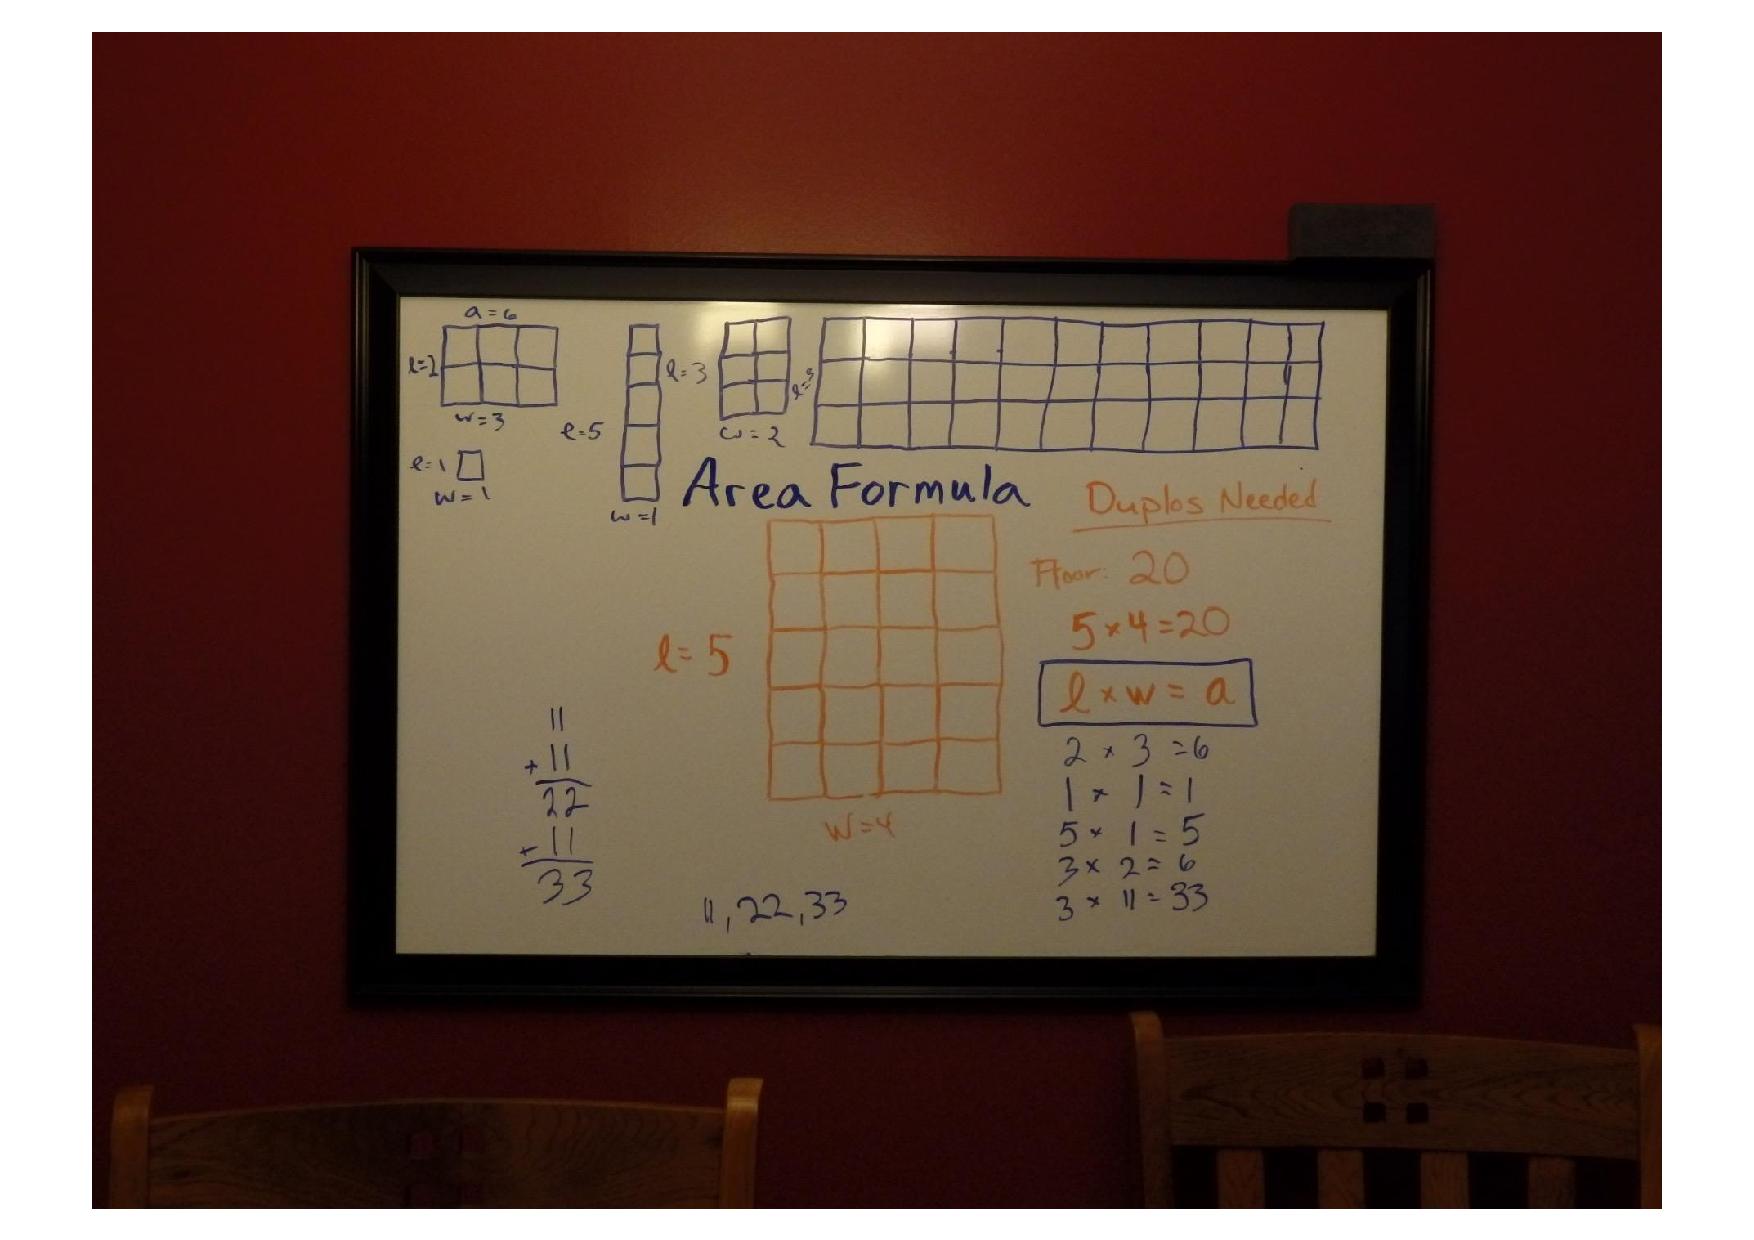 a = 6
l=2
w=3
l=1
w=1
l=5
w=1
l=3
w=2
l=3
Area Formula
l=5
w=4
Duplos Needed
Floor: 20
5×4=20
l×w=a
2×3=6
1×1=1
5×1=5
3×2=6
3×11=33
11
+11
22
+11
33
11,22,33